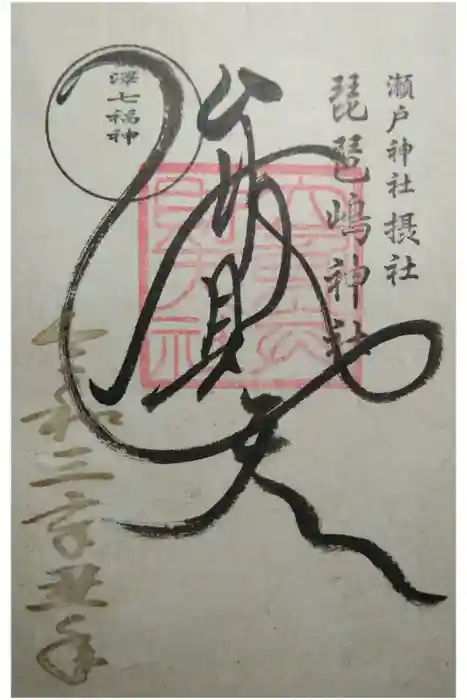 瀬戸神社 摂社
琵琶嶋神社
弁財天
澤七福神
令和三辛丑年